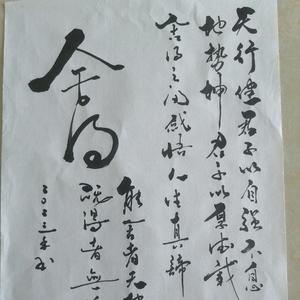 天行健君子以自强不息
地势坤君子以厚德载
舍得之间感悟人生真谛
舍得
能舍者无
既得者無
二〇二三年书